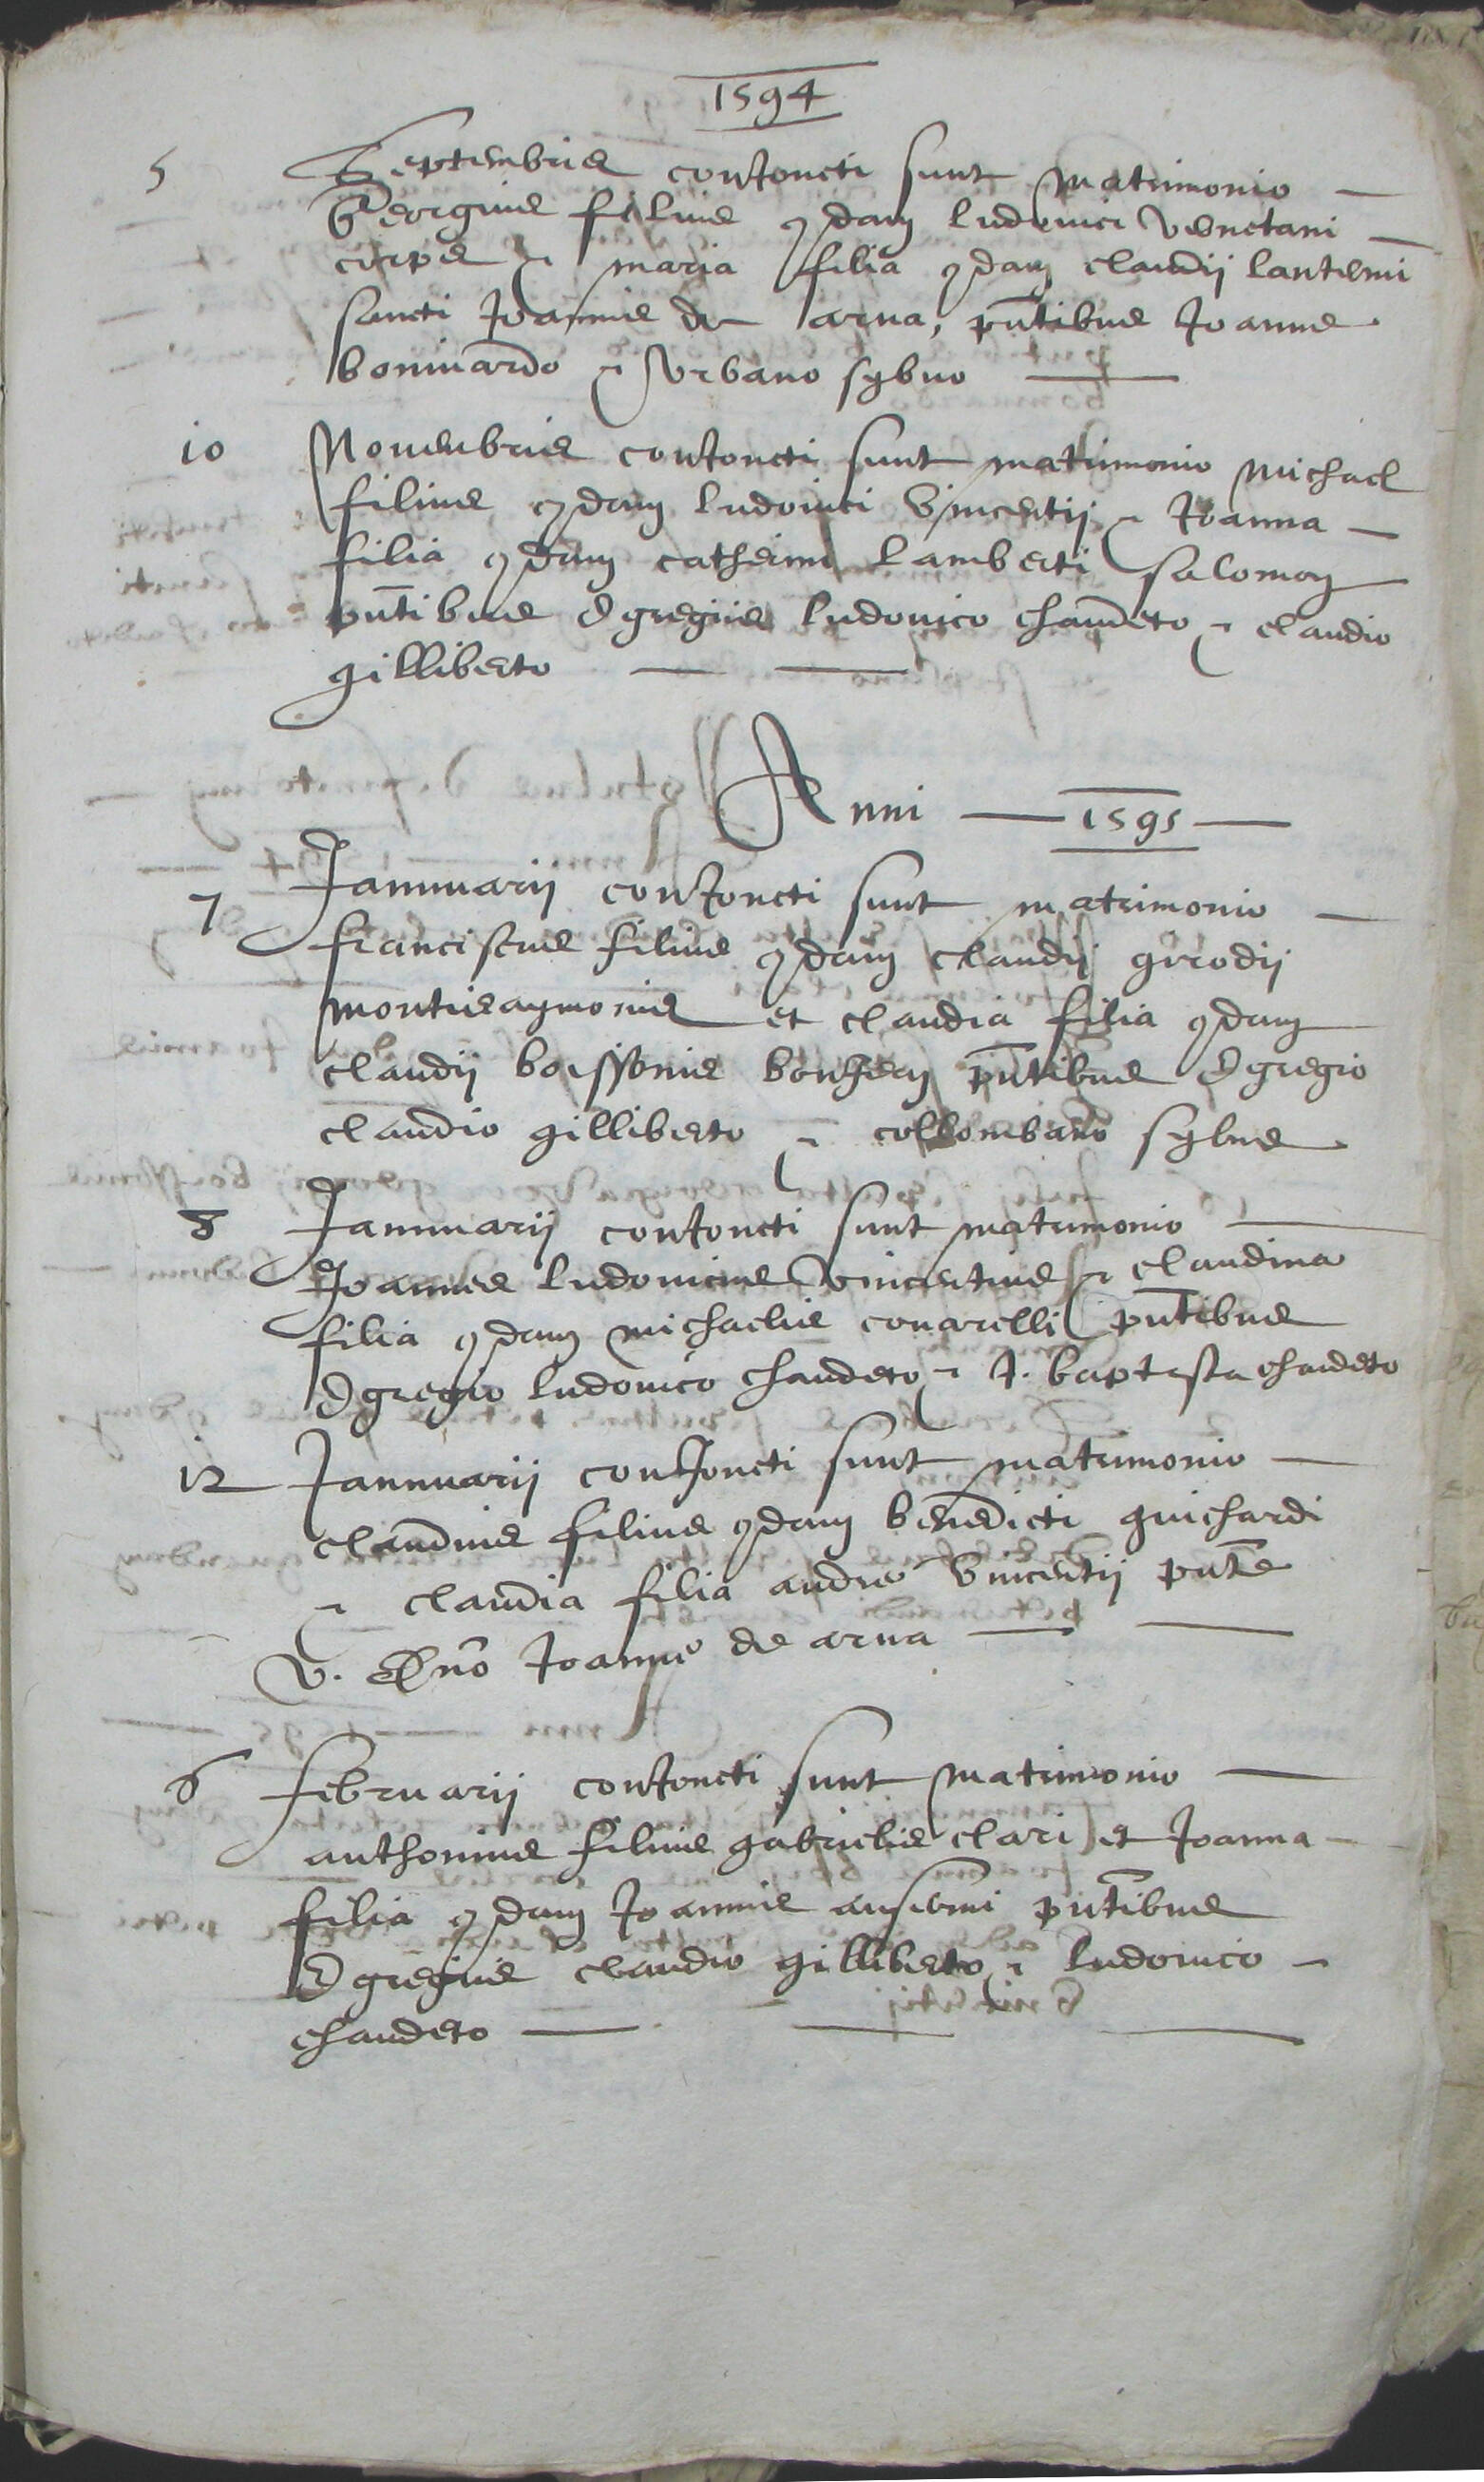 1594
5 Septembris conjoncti sunt matrimonio
Georgius filius qdam ludovici venetani
et maria filia qdam claudij lantermi
sancti Joannis de arva, pntibus Joanne
boniuardo et Vrbano syluo
10 Novembris conjoncti sunt matrimonio Michael
filius qdam ludovici Vincentij et Joanna
filia qdam catherini lamberti salomon
pntibus Egregiis ludovico chandeto et claudio
gilliberto
Anni 1595
7 Jannuarij conjoncti sunt matrimonio
franciscus filius qdam claudij girodij
montisaymonis et claudia filia qdam
claudij boissonis pntibus Egregio
claudio gilliberto et collombano sylue
8 Jannuarij conjoncti sunt matrimonio
Joannes ludovicus Vincentius et claudina
filia qdam michaelis conarelli pntibus
Egregio ludovico chandeto et J. baptista chandeto
12 Jannuarij conjoncti sunt matrimonio
claudius filius qdam benedicti guichardi
et claudia filia andree Vincentij pnte
v. Dno Joanne de arva
6 februarij conjoncti sunt matrimonio
anthonius filius gabrielis clari et Joanna
filia qdam Joannis ansermi pntibus
Egregiis claudio gilliberto et ludovico
chandeto